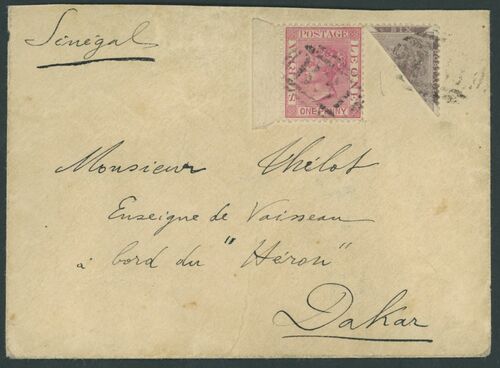 Sénégal
POSTAGE
SIERRA LEONE
ONE PENNY
SIX
Monsieur Thélot
Enseigne de Vaisseau
à bord du "Héron"
Dakar